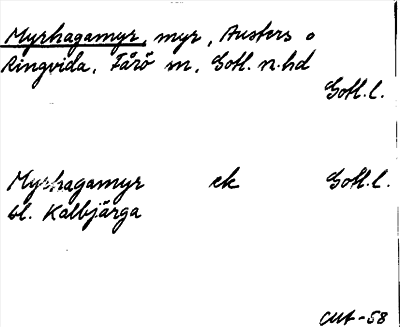 Myrhagamyr, myr, Austers o
Ringvida, Fårö sn, Gotl. n. hd
Gotl. l.
Myrhagamyr ek Gotl. l.
bl. Kalbjärga
CMA-58